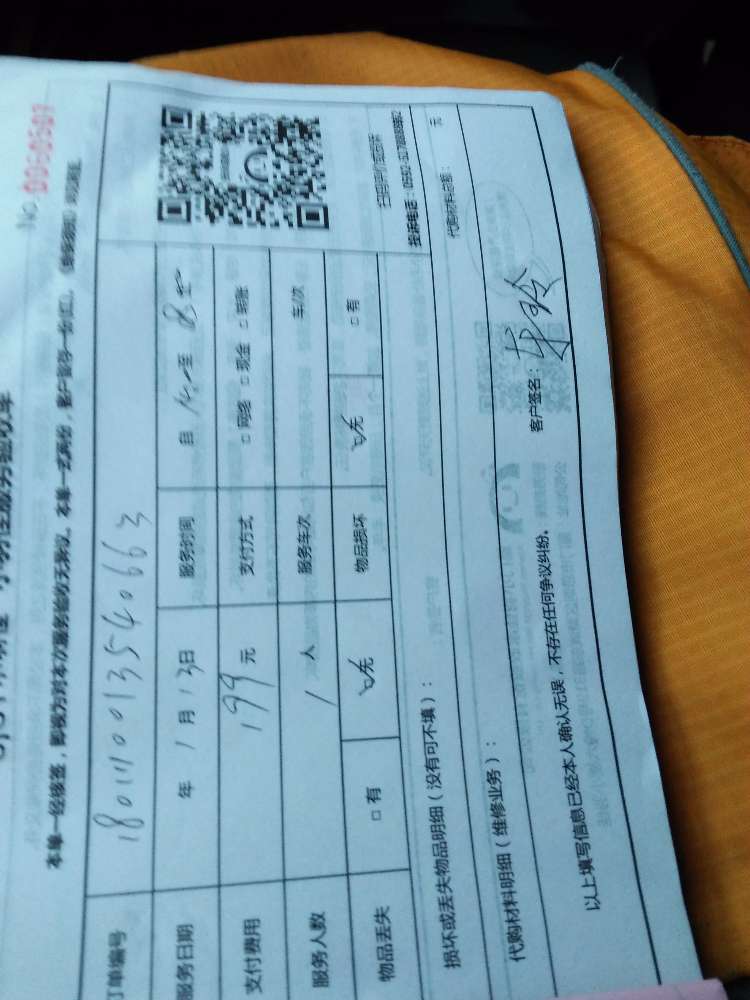 No 0060507
本单一经核签，即视为对本次服务验收无异议。本单一式两份，客户留存一份
订单编号 1801110013540663
服务日期 年 1 月 13 日 服务时间 自 至
支付费用 199 元 支付方式 □ 网络 □ 现金 □ 转账
服务人数 1 人 服务车次 车/次
物品丢失 □ 有 无 物品损坏 无 □ 有
投诉电话：
损坏或丢失物品明细（没有可不填）：
代购材料明细（维修业务）： 代购材料总额： 元
以上填写信息已经本人确认无误，不存在任何争议纠纷。 客户签名：